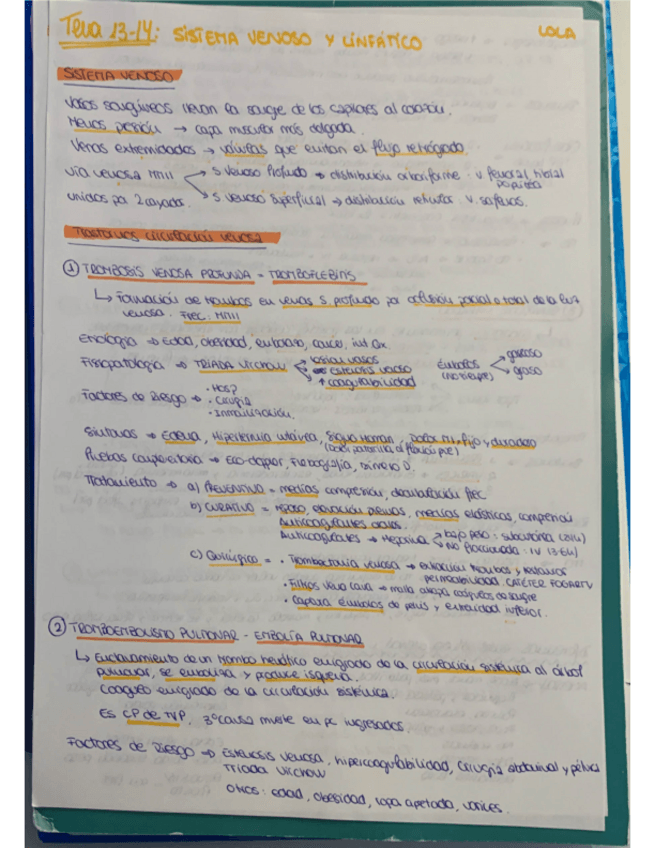 Tema 13-14: SISTEMA VENOSO Y LINFÁTICO LOLA
SISTEMA VENOSO
Vasos sanguíneos llevan la sangre de los capilares al corazón.
Menos presión → capa muscular más delgada.
Venas extremidades → válvulas que evitan el flujo retrógrado
Vía venosa MMII → S venoso Profundo → distribución arboriforme · V femoral, tibial
poplítea
unidos por 2 cayados. → S venoso superficial → distribución reticular V. safenas.
Trastornos circulación venosa
① TROMBOSIS VENOSA PROFUNDA - TROMBOFLEBITIS
↳ Formación de trombos en venas S. profundo por oclusión parcial o total de la luz
venosa. Frec: MMII
Etiología → Edad, obesidad, embarazo, cáncer, int Qx.
Fisiopatología → TRIADA VIRCHOW
lesión vasos
estasis venoso
↑ coagulabilidad
Émbolos
(no siempre)
gaseoso
graso
Factores de Riesgo →
· Hosp
· Cirugía
· Inmovilización.
Síntomas → Edema, Hipertermia cutánea, Signo Homan, Dolor fijo y duradero
(Dolor pantorrilla al flexionar pie)
Pruebas complementarias → Eco-doppler, Flebografía, Dímero D.
Tratamiento → a) PREVENTIVO = medias compresión, deambulación frec
b) CURATIVO = reposo, elevación piernas, medias elásticas, compresión
Anticoagulantes orales.
Anticoagulantes → Heparina
bajo peso: subcutánea (24h)
No fraccionada: IV
c) Quirúrgico = · Trombectomía venosa → extracción trombos y restauramos
permeabilidad CATÉTER FOGARTY
· Filtros vena cava → malla atrapa coágulos de sangre
· Captura émbolos de pelvis y extremidad inferior.
② TROMBOEMBOLISMO PULMONAR - EMBOLIA PULMONAR
↳ Enclavamiento de un trombo hemático emigrado de la circulación sistémica al árbol
pulmonar, se emboliza y produce isquemia.
Coágulo emigrado de la circulación sistémica.
Es CP de TVP, 3ª causa muerte en pc ingresados.
Factores de Riesgo → Estenosis venosa, hipercoagulabilidad, cirugía abdominal y pélvica
TRIADA VIRCHOW
Otros: edad, obesidad, ropa apretada, varices.